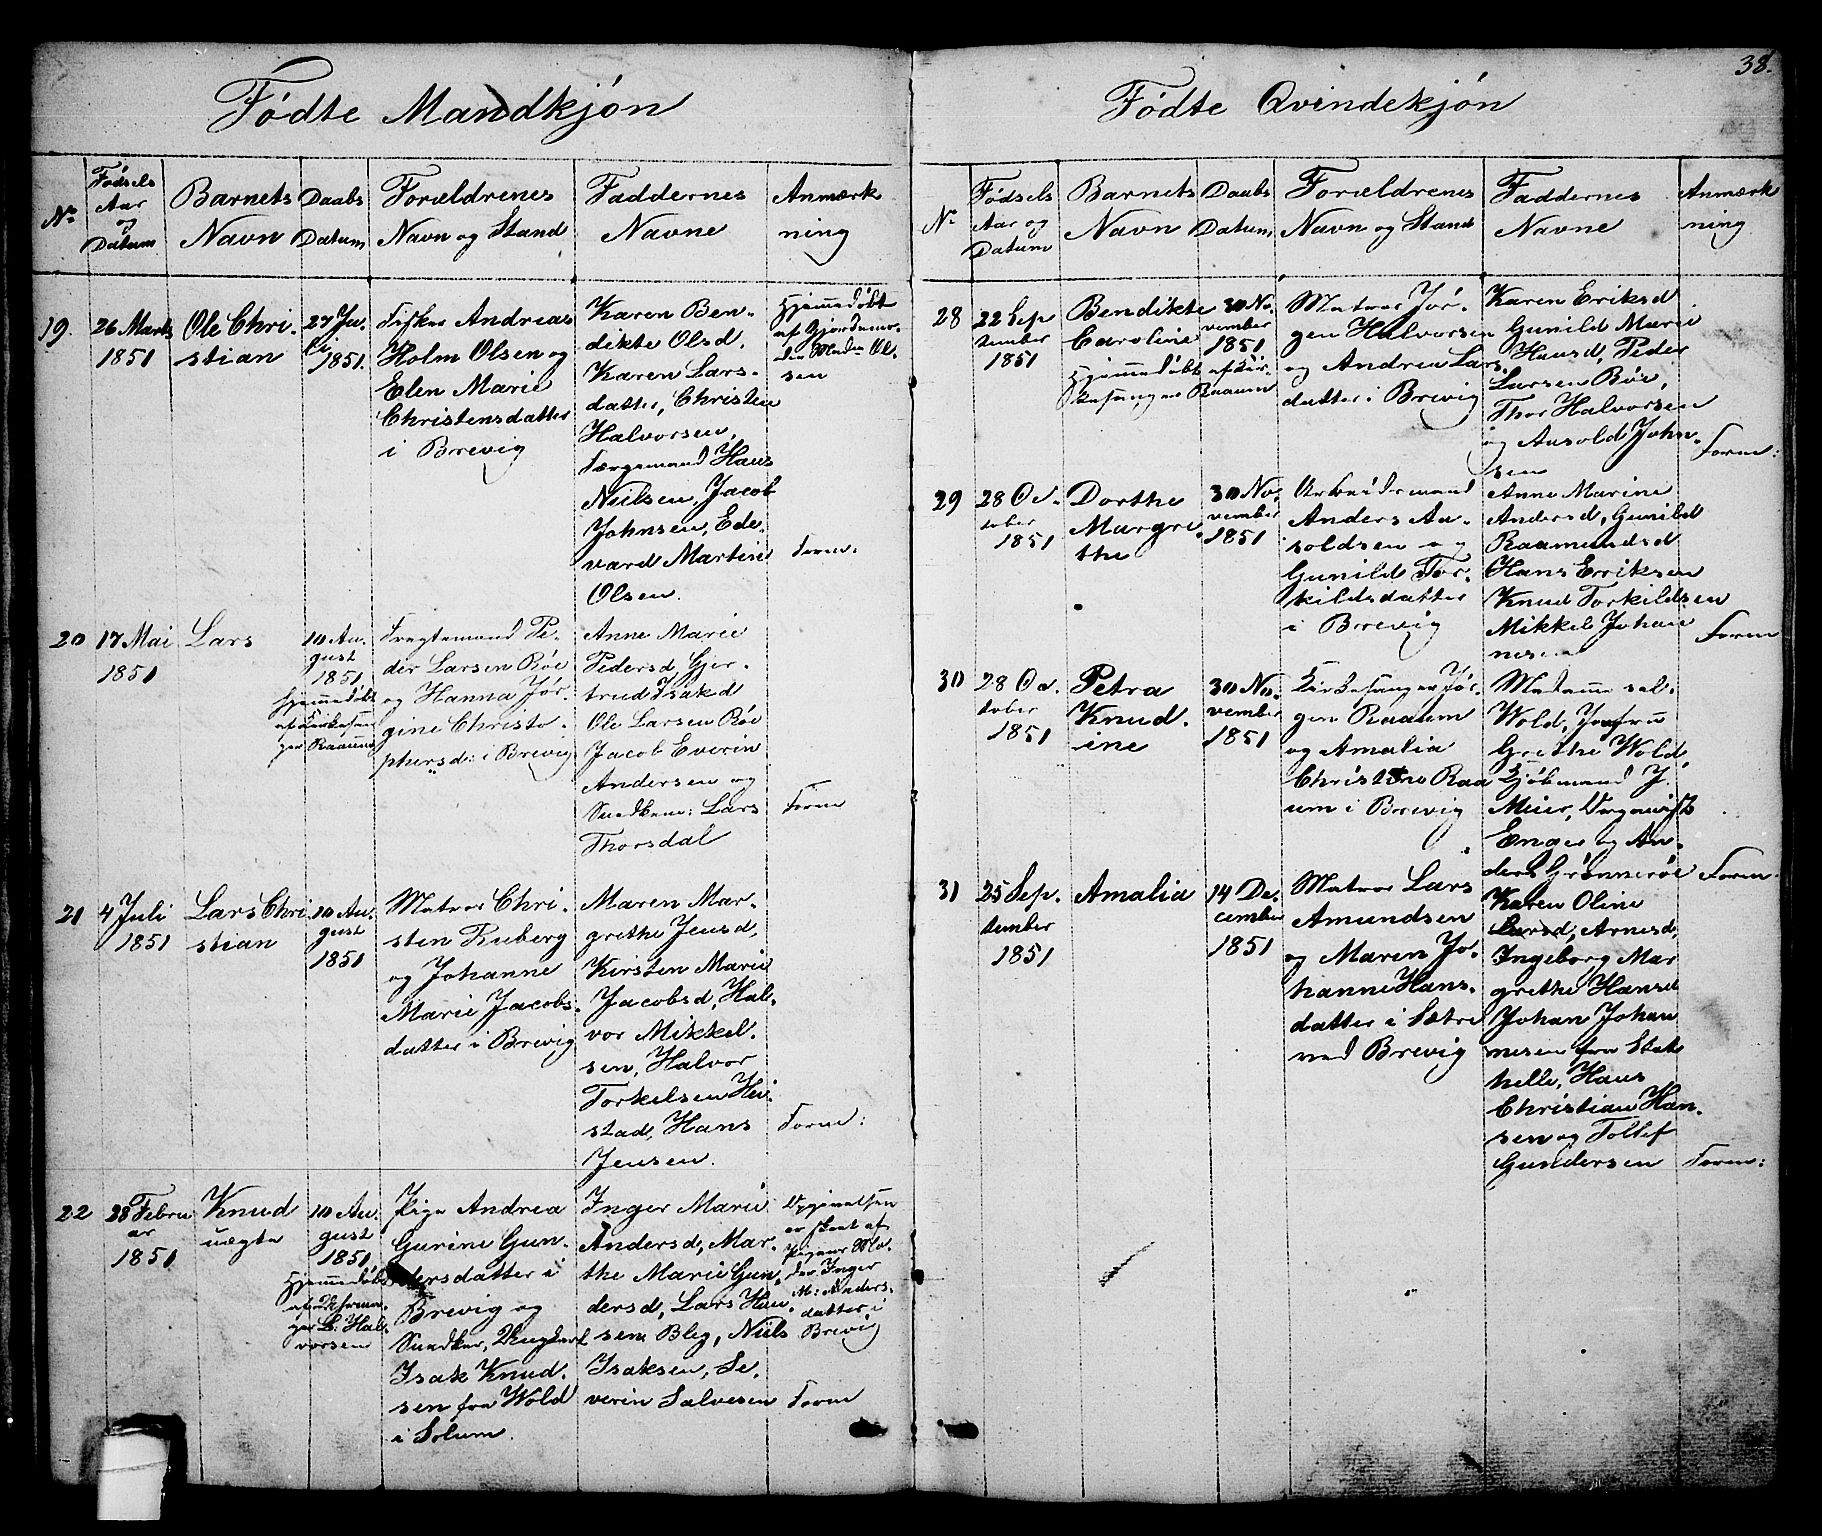 Fødte Mandkjøn
No
Fødsels
Aar
og
Datum
Barnets
Navn
Daabs
Datum
Forældrenes
Navn og Stand
Faddernes
Navne
Anmærk
ning
19.
26 Marts
1851
Ole Chri-
stian
27 Ju-
li
1851.
Fisker Andreas
Holm Olsen og
Elen Marie
Christensdatter
i Brevig
Karen Ben-
dikte Olsd.
Karen Lars-
datter, Christen
Halvorsen,
Færgemand Hans
Nielsen, Jacob
Johnsen, Ede-
vard Martin
Olsen.
Hjemmedøbt
af Gjordemo-
Ol-
sen
Form:
20
17 Mai
1851
Lars
10 Au-
gust
1851
Hjemmedøbt
af Kirkesan-
ger Raaum
Fragtemand Pe-
der Larsen Røe
og Hanna Jør-
gine Christo-
phersd: i Brevig
Anne Marie
Pedersd, Gjer-
trud Isakd
Ole Larsen Røe
Jacob Everin
Andersen og
Snedker: Lars
Thorsdal
Form
21
4 Juli
1851
Lars Chri
stian
10 Au-
gust
1851
Matros Chri-
sten Ruberg
og Johanne
Marie Jacobs-
datter i Brevig
Maren Mar-
grethe Jensd,
Kirsten Marie
Jacobsd, Hal-
vor Mikkel-
sen, Halvor
Torkelsen Hei-
stad, Hans
Jensen.
Form:
22
28 Febru
ar
1851
Knud
uægte
10 Au-
gust
1851,
Hjemmedøbt
af
ger L: Hal-
vorsen
Pige Andrea
Gurine Gun-
dersdatter i
Brevig og
Snedker, Ungkarl
Isak Knud-
sen fra Wold
i Solum.
Inger Marie
Andersd, Mar-
the Marie Gun-
dersd, Lars Han-
sen Bleg, Niils
Isaksen, Se-
verin Salvesen
Opgivelsen
er skeet af
Pigens Mo-
der Inger
M: Anders-
datter i
Brevig
Form
38.
Fødte Qvindekjøn
No
Fødsels
Aar og
Datum
Barnets
Navn
Daabs
Datum
Forældrenes
Navn og Stand
Faddernes
Navne
Anmærk
ning
28
22 Sep
tember
1851
Bendikte
Caroline
Hjemmedøbt af Kir-
kesanger Raaum
30 No-
vember
1851
Matros Jør-
gen Halvorsen
og Andrea Lars-
datter i Brevig
Karen Eriksd
Gunild Marie
Hansd, Peder
Larsen Røe,
Thor Halvorsen
og Aasold John-
sen
Form:
29
28 Oc-
tober
1851
Dorthe
Margre-
the
30 No-
vember
1851
Arbeidsmand
Anders Aa-
soldsen og
Gunild Tor-
kildsdatter
i Brevig
Anne Marine
Andersd, Gunild
Raamundsd
Hans Eriksen
Knud Torkildsen
Mikkel Johan
nesen
Form
30
28 Oc-
tober
1851
Petra
Knud-
ine
30 No-
vember
1851
Kirkesanger Jør-
gen Raaum
og Amalia
Christine Raa
um i Brevig
Madame sal-
Wold, Jomfru
Grethe Wold,
Kjøbmand J.
Meier, Organist
Enger og An-
ders Grønnerøe
Form
31
25 Sep-
tember
1851
Amalia
14 De-
cember
1851
Matros Lars
Amundsen
og Maren Jo-
hanne Hans-
datter i Sætre
ved Brevig
Karen Oline
Larsd, Arnesd,
Ingeborg Mar
grethe Hansd
Johan Johan
nesen fra Stat
helle, Hans
Christian Han-
sen og Tollef
Gundersen
Form: